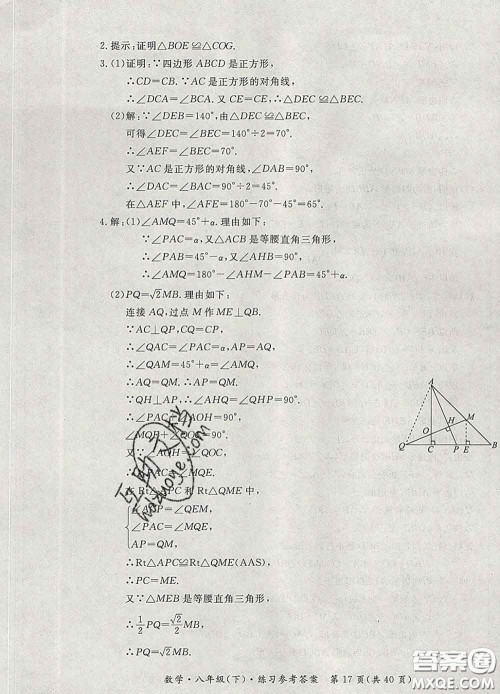 2. 提示:证明△BOE≌△COG.
3. (1)证明:∵四边形 ABCD 是正方形,
∴CD=CB. ∵AC 是正方形的对角线,
∴∠DCA=∠BCA. 又 CE=CE, ∴△DEC≌△BEC.
(2)解:∵∠DEB=140°,由△DEC≌△BEC,
可得∠DEC=∠BEC=140°÷2=70°.
∴∠AEF=∠BEC=70°.
又∵AC 是正方形的对角线,∠DAB=90°,
∴∠DAC=∠BAC=90°÷2=45°.
在△AEF 中,∠AFE=180°-70°-45°=65°.
4. 解:(1)∠AMQ=45°+α. 理由如下:
∵∠PAC=α,又△ACB 是等腰直角三角形,
∴∠PAB=45°-α,又∠AHB=90°,
∴∠AMQ=180°-∠AHM-∠PAB=45°+α.
(2)PQ=√2MB. 理由如下:
连接 AQ,过点 M 作 ME⊥QB.
∵AC⊥QP,CQ=CP,
∴∠QAC=∠PAC=α,
∴∠QAM=45°+α=∠AMQ,
∴AQ=QM. ∴AP=QM.
∵QH⊥AP, ∴∠QHP=90°.
∴∠PAC+∠AOH=90°,
∠MQE+∠QOC=90°.
又∵∠AOH=∠QOC,
∴∠PAC=∠MQE.
在 Rt△APC 和 Rt△QME 中,
∠ACP=∠QEM,
∠PAC=∠MQE,
AP=QM,
∴Rt△APC≌Rt△QME(AAS).
∴PC=ME.
又∵△MEB 是等腰直角三角形,
∴1/2PQ=√2/2MB,
∴PQ=√2MB.
A
M
H
O
Q
C
P
E
B
互助文档
hdzuoye.com
数学·八年级(下)·练习参考答案 第 17 页(共 40 页)
作业精灵
MXQE.COM